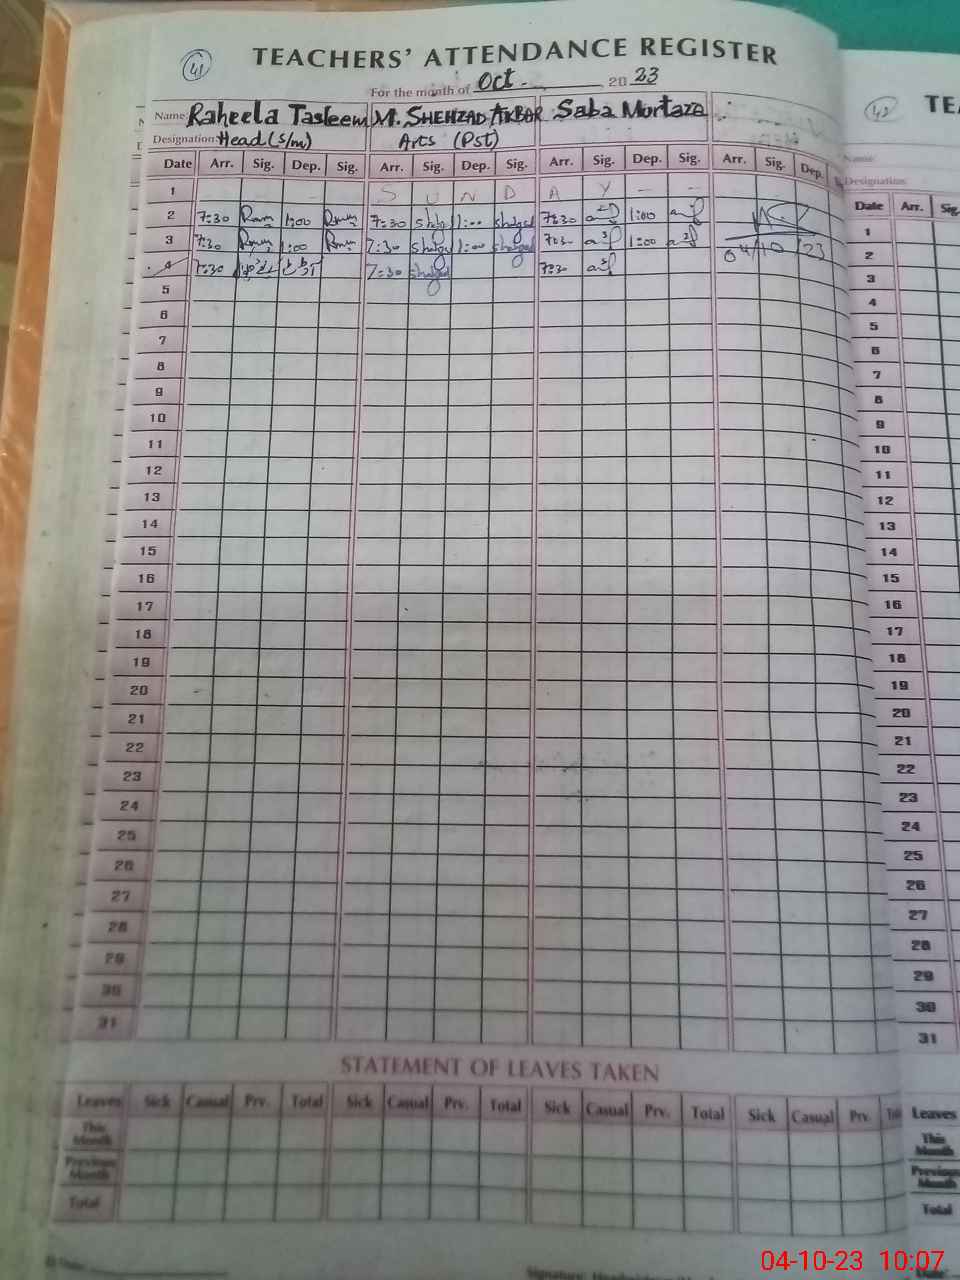 41
TEACHERS' ATTENDANCE REGISTER
For the month of Oct - 2023
Name Raheela Tasleem M. SHEHZAD AKBAR Saba Murtaza
Designation: Head (S/m) Arts (Pst)
Date Arr. Sig. Dep. Sig. Arr. Sig. Dep. Sig. Arr. Sig. Dep. Sig. Arr. Sig. Dep.
1 - - - S U N D A Y - -
2 7:30 1:00 7:30 1:00 7:30 1:00
3 7:30 1:00 7:30 1:00 7:30 1:00 04/10/23
4 7:30 7:30 7:30
5
6
7
8
9
10
11
12
13
14
15
16
17
18
19
20
21
22
23
24
25
26
27
28
29
30
31
STATEMENT OF LEAVES TAKEN
Leaves Sick Casual Prv. Total Sick Casual Prv. Total Sick Casual Prv. Total Sick Casual Prv.
This Month
Previous Month
Total
42
TE
Name:
Designation:
Date Arr. Sig.
1
2
3
4
5
6
7
8
9
10
11
12
13
14
15
16
17
18
19
20
21
22
23
24
25
26
27
28
29
30
31
Leaves
This
Month
Previous
Month
Total
04-10-23 10:07